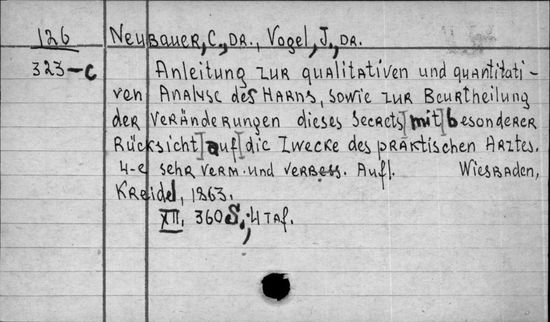 126 Neubauer, C., Dr., Vogel, J., Dr.
323-C Anleitung zur qualitativen und quantitati-
ven Analyse des Harns, sowie zur Beurtheilung
der Veränderungen dieses Secrets] mit [besonderer
Rücksicht] auf [die Zwecke des praktischen Arztes.
4-e sehr verm. und verbess. Aufl. Wiesbaden,
Kreidel, 1863.
XII, 360 S.; 4 Taf.